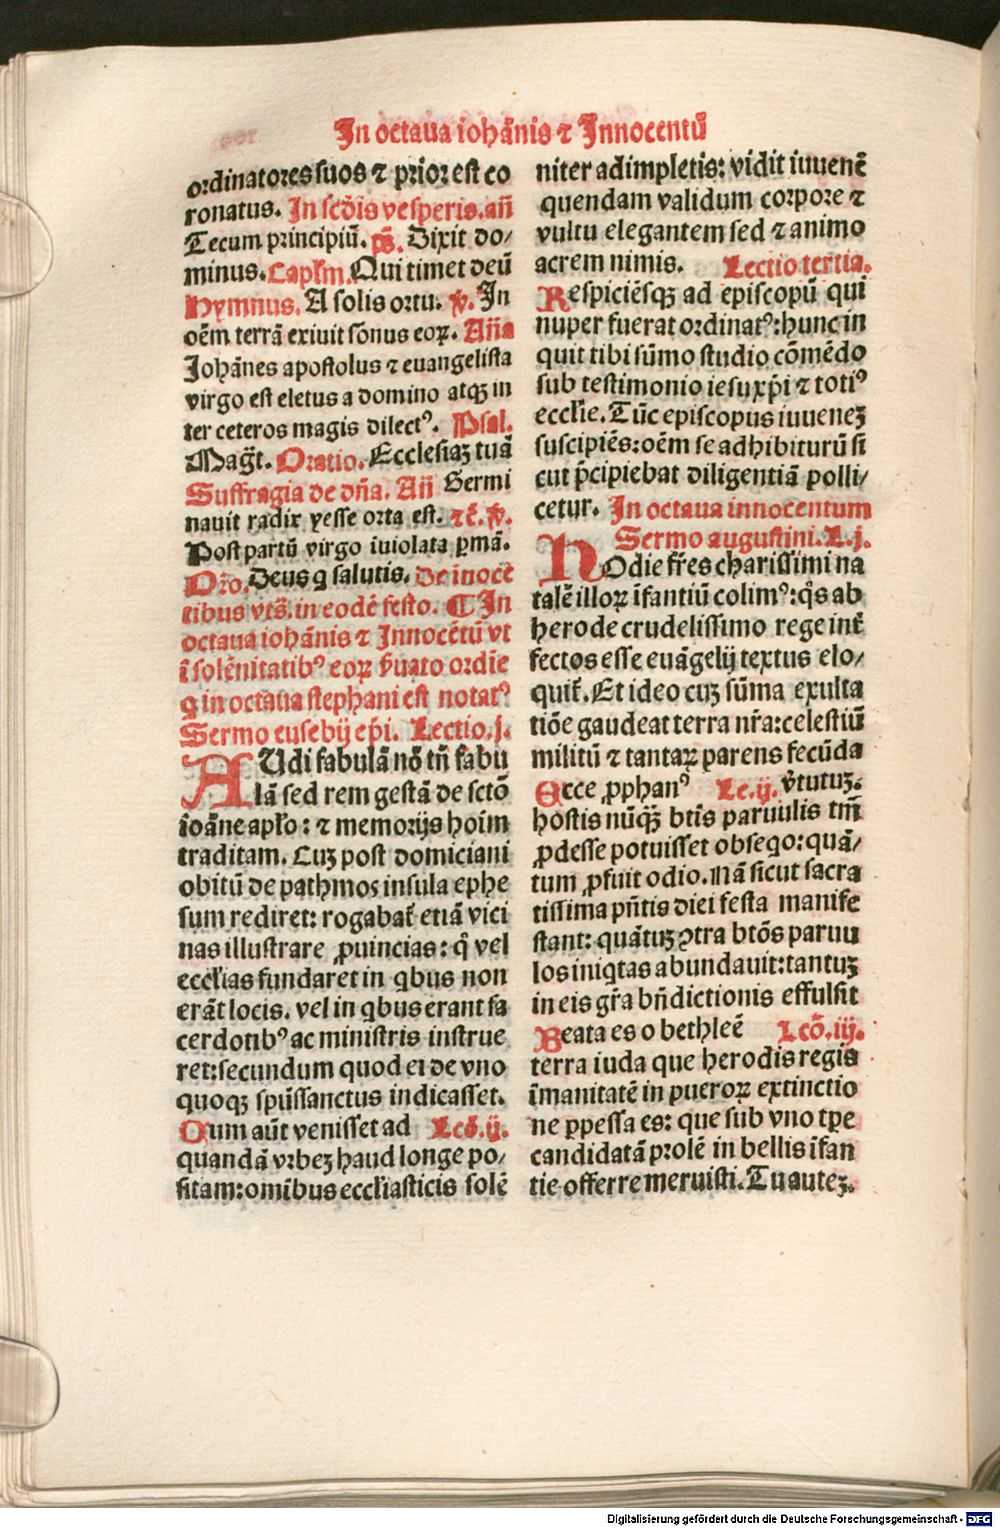 In octaua iohānis ⁊ Innocentū
ordinatores suos ⁊ prior est co
ronatus. In scd̄is vesperis. an̄
Tecum principiū. ps̄. Dixit do/
minus. Caplm̄. Qui timet deū
Hymnus. A solis ortu. v̄. In
oēm terrā exiuit sonus eoꝝ. Aña
Johānes apostolus ⁊ euangelista
virgo est eletus a domino atqꝫ in
ter ceteros magis dilectꝰ. Psal.
Mag̃t. Oratio. Ecclesiaꝫ tuā
Suffragia de dña. An̄ Germi
nauit radix yesse orta est. ⁊c̄. v̄.
Post partū virgo iuiolata ꝑmā.
Oro. Deus q salutis. de inocē
tibus vts̄. in eodē festo. ¶ In
octaua iohānis ⁊ Innocētū vt
ī solēnitatibꝰ eoꝝ ẜuato ordīe
q in octaua stephani est notatꝰ
Sermo eusebij ep̄i. Lectio .j.
AUdi fabulā nō tn̄ fabu
lā sed rem gestā de sctō
ioāne aplo: ⁊ memorijs hoīm
traditam. Cuꝫ post domiciani
obitū de pathmos insula ephe
sum rediret: rogabat̄ etiā vici
nas illustrare ꝓuincias: q̄ vel
eccl̄ias fundaret in qbus non
erāt locis. vel in qbus erant sa
cerdotibꝰ ac ministris instrue
ret: secundum quod ei de vno
quoqꝫ spūssanctus indicasset.
Cum aūt venisset ad Lcō. ij.
quandā vrbeꝫ haud longe po/
sitam: omībus eccl̄iasticis solē
niter adimpletis: vidit iuuenē
quendam validum corpore ⁊
vultu elegantem sed ⁊ animo
acrem nimis. Lectio tertia.
Respiciēsqꝫ ad episcopū qui
nuper fuerat ordinatꝰ: hunc in
quit tibi sūmo studio cōmēdo
sub testimonio iesuxp̄i ⁊ totiꝰ
eccl̄ie. Tūc episcopus iuueneꝫ
suscipiēs: oēm se adhibiturū si
cut p̄cipiebat diligentiā polli/
cetur. In octaua innocentum
Sermo augustini. L. j.
HOdie fr̄es charissimi na
talē illoꝝ īfantiū colimꝰ: q̄s ab
herode crudelissimo rege int̄
fectos esse euāgelij textus elo/
quit̄. Et ideo cuꝫ sūma exulta
tiōe gaudeat terra nr̄a: celestiū
militū ⁊ tantaꝝ parens fecūda
Ecce ꝓphanꝰ Le. ij. v̄tutuꝫ.
hostis nūqꝫ̄ bt̄is paruulis tm̄
ꝓdesse potuisset obseqo: quā/
tum ꝓfuit odio. Nā sicut sacra
tissima pn̄tis diei festa manife
stant: quātuꝫ ꝯtra btōs paruu
los iniqtas abundauit: tantuꝫ
in eis gr̄a bn̄dictionis effulsit
Beata es o bethleē Lcō. iij.
terra iuda que herodis regis
īmanitatē in pueroꝝ extinctio
ne ꝑpessa es: que sub vno tꝑe
candidatā prolē in bellis īfan
tie offerre meruisti. Tu auteꝫ.
Digitalisierung gefördert durch die Deutsche Forschungsgemeinschaft - DFG